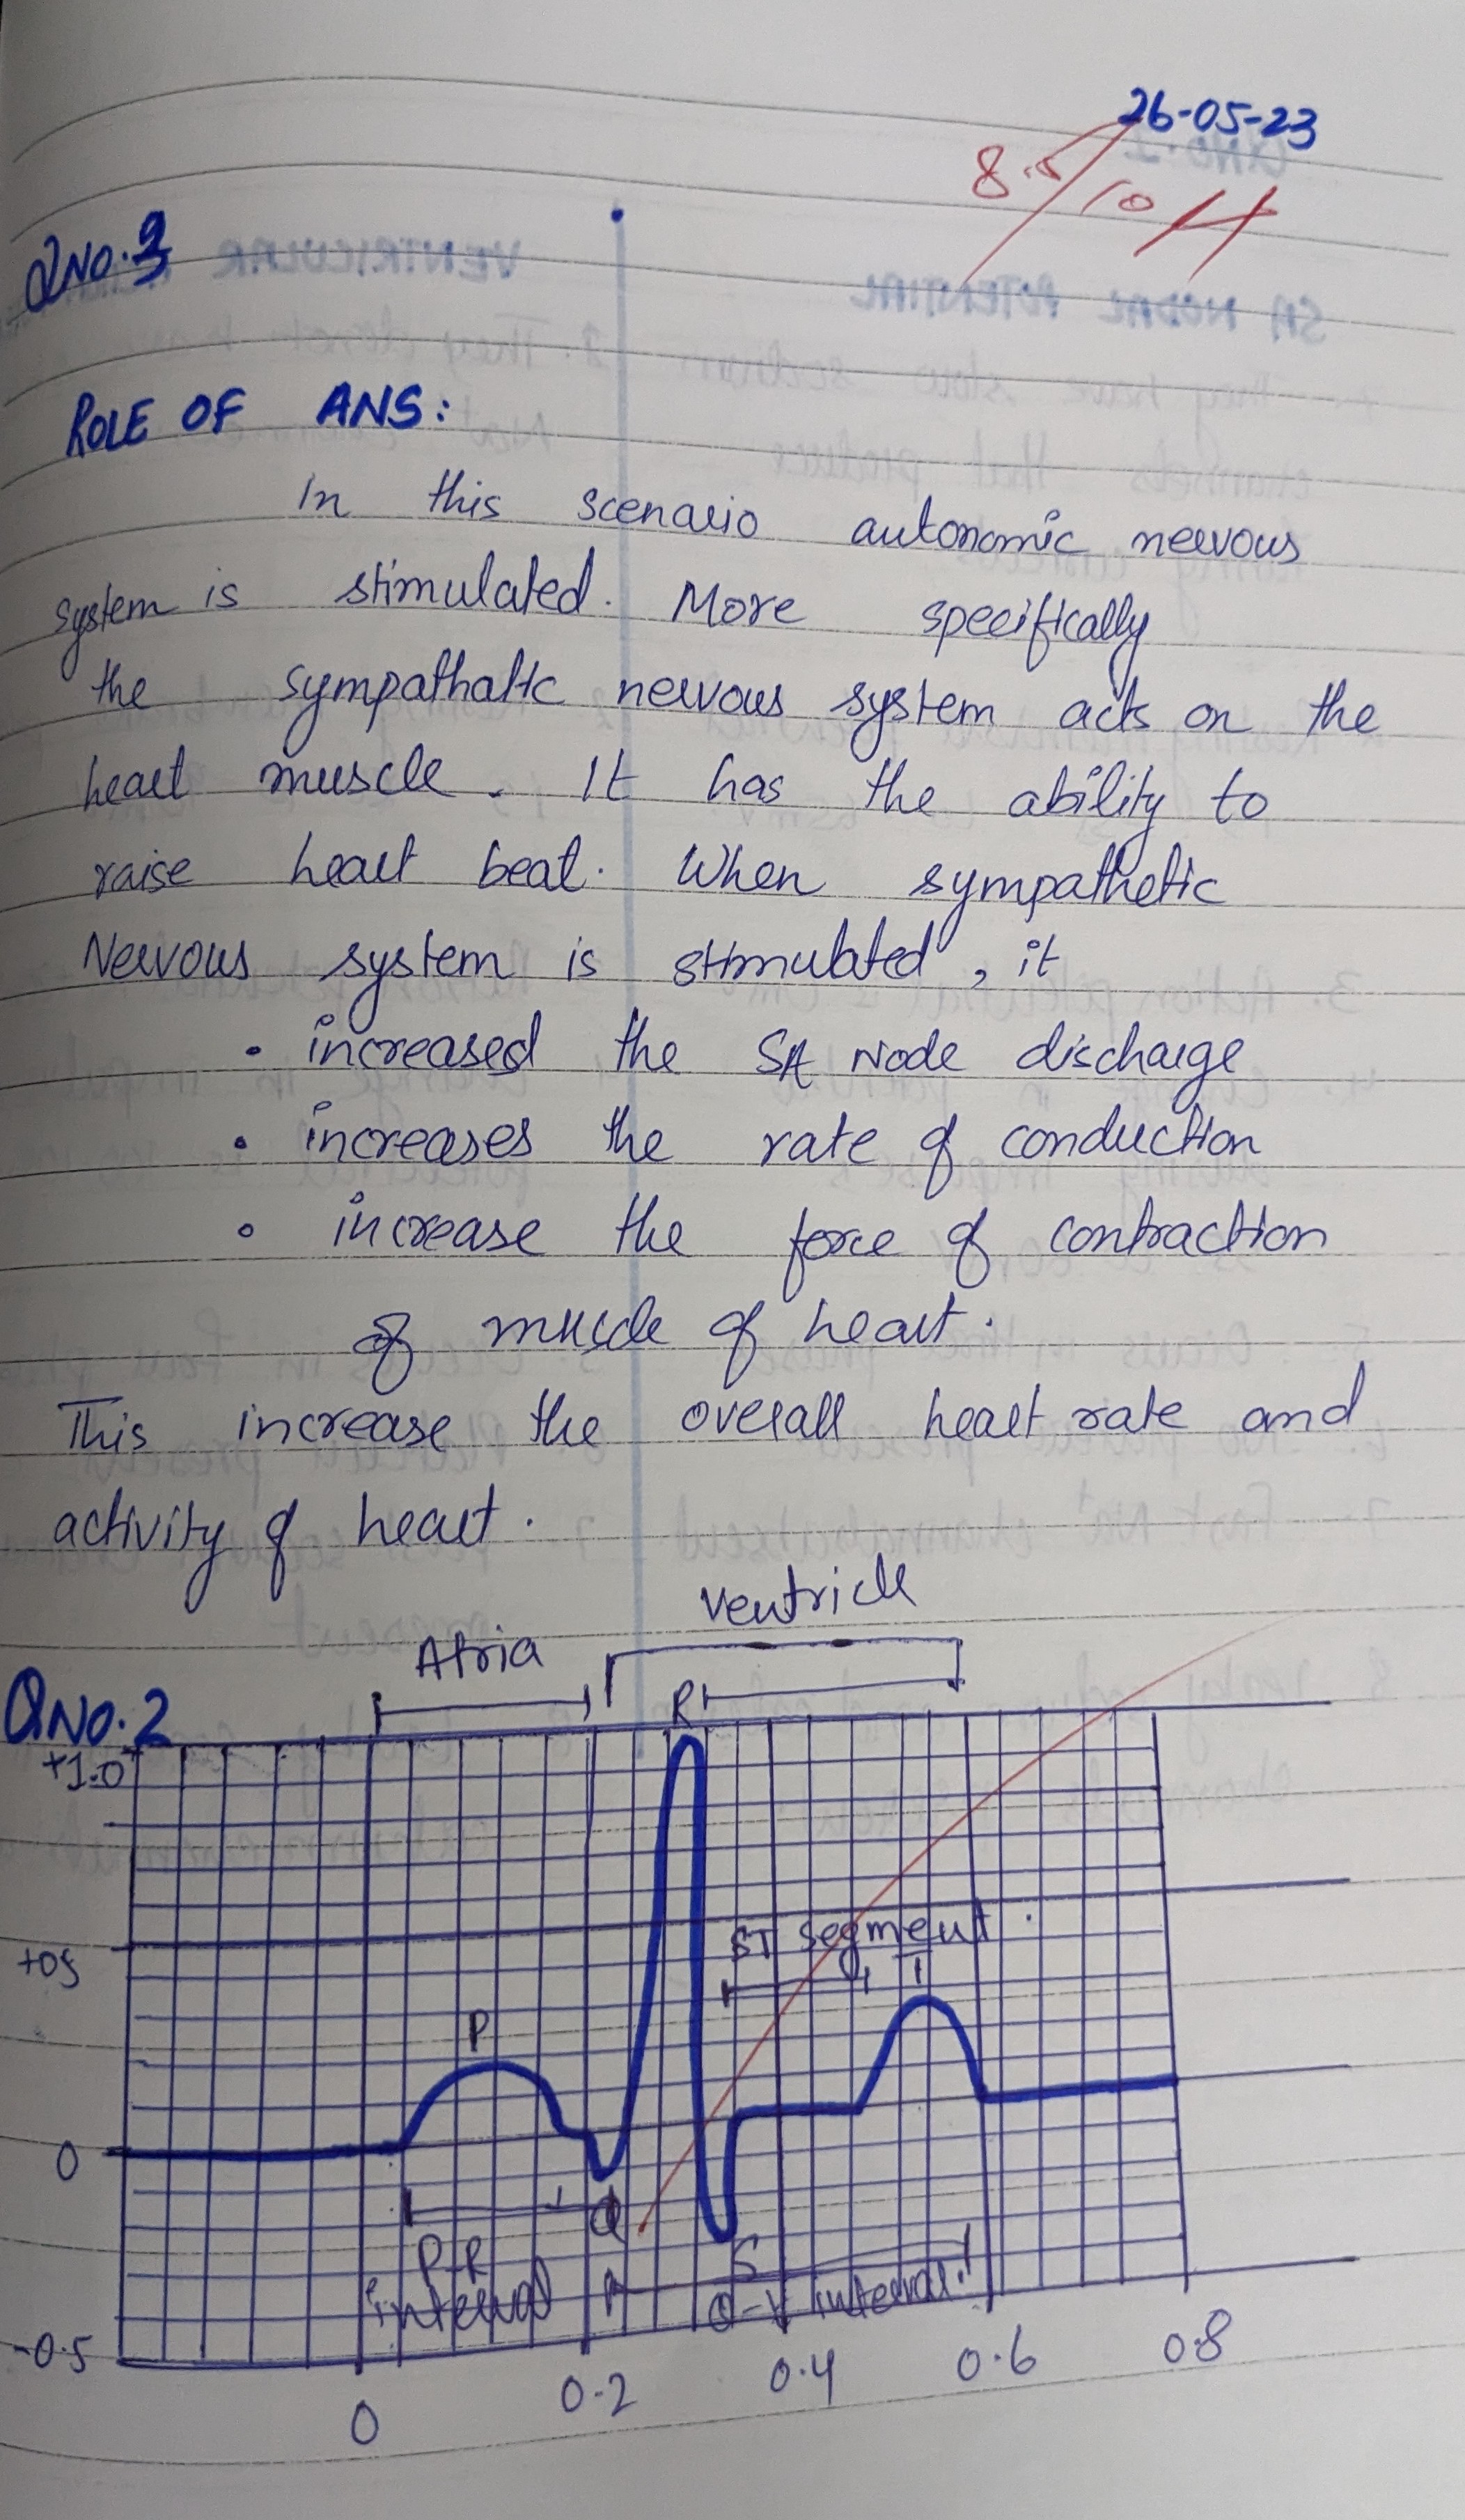 26-05-23
8.5/10
QNO.3
ROLE OF ANS:
In this scenario autonomic nervous
system is stimulated. More specifically
the sympathatic nervous system acts on the
heart muscle. It has the ability to
raise heart beat. When sympathetic
Nervous system is stimulated, it
• increased the SA Node discharge
• increases the rate of conduction
• increase the force of contraction
of muscle of heart.
This increase the overall heart rate and
activity of heart.
Atria ventricle
QNO.2
R
+1.0
ST segment
+05
T
P
0
Q
P-R
interval
S
interval
-0.5
0 0.2 0.4 0.6 0.8